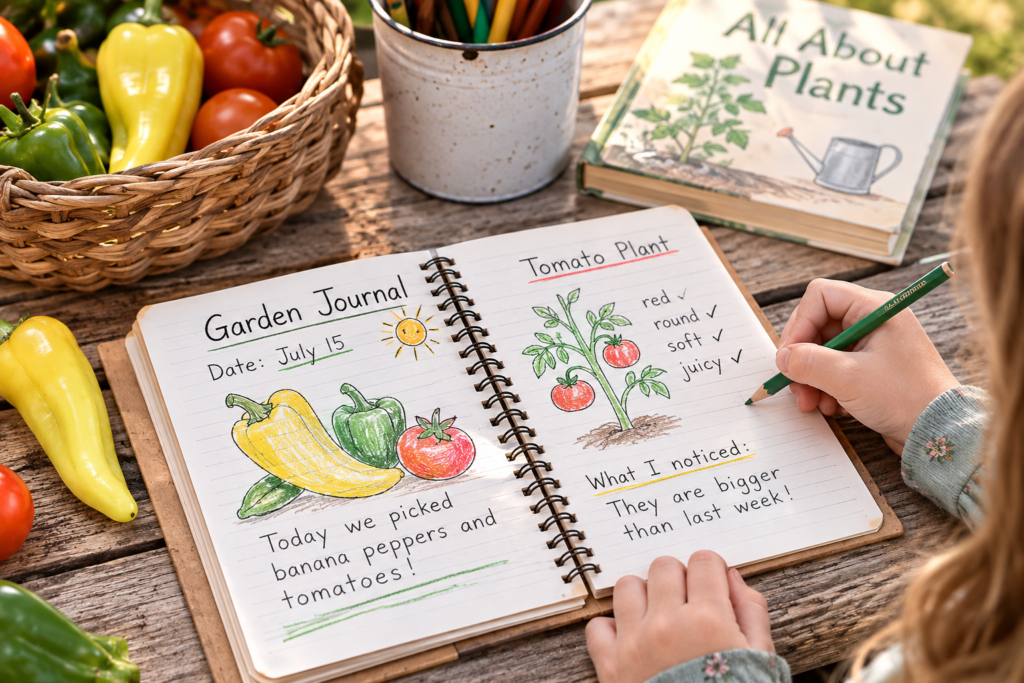 All About
Plants
Garden Journal
Date: July 15
Today we picked
banana peppers and
tomatoes!
Tomato Plant
red ✓
round ✓
soft ✓
juicy ✓
What I noticed:
They are bigger
than last week!